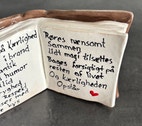 kærlighed
i brand
humor
Røres nænsomt
Sammen
lidt magi tilsættes
Bages forsigtigt på
resten af livet
Og kærligheden
Opstår